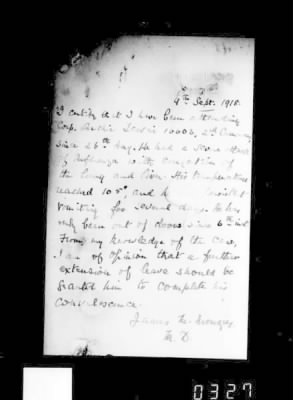 9th Sept. 1918.
I certify that I have been attending
Corp. Archie Lewis 10006, 2nd
since 26th Aug. He had a severe attack
of Influenza with congestion of
the lung and liver. His temperature
reached 105° and h violent
vomiting for several days. He has
only been out of doors since 6th inst.
From my knowledge of the case,
I am of opinion that a further
extension of leave should be
granted him to complete his
convalescence.
James M.
M.D.
0327